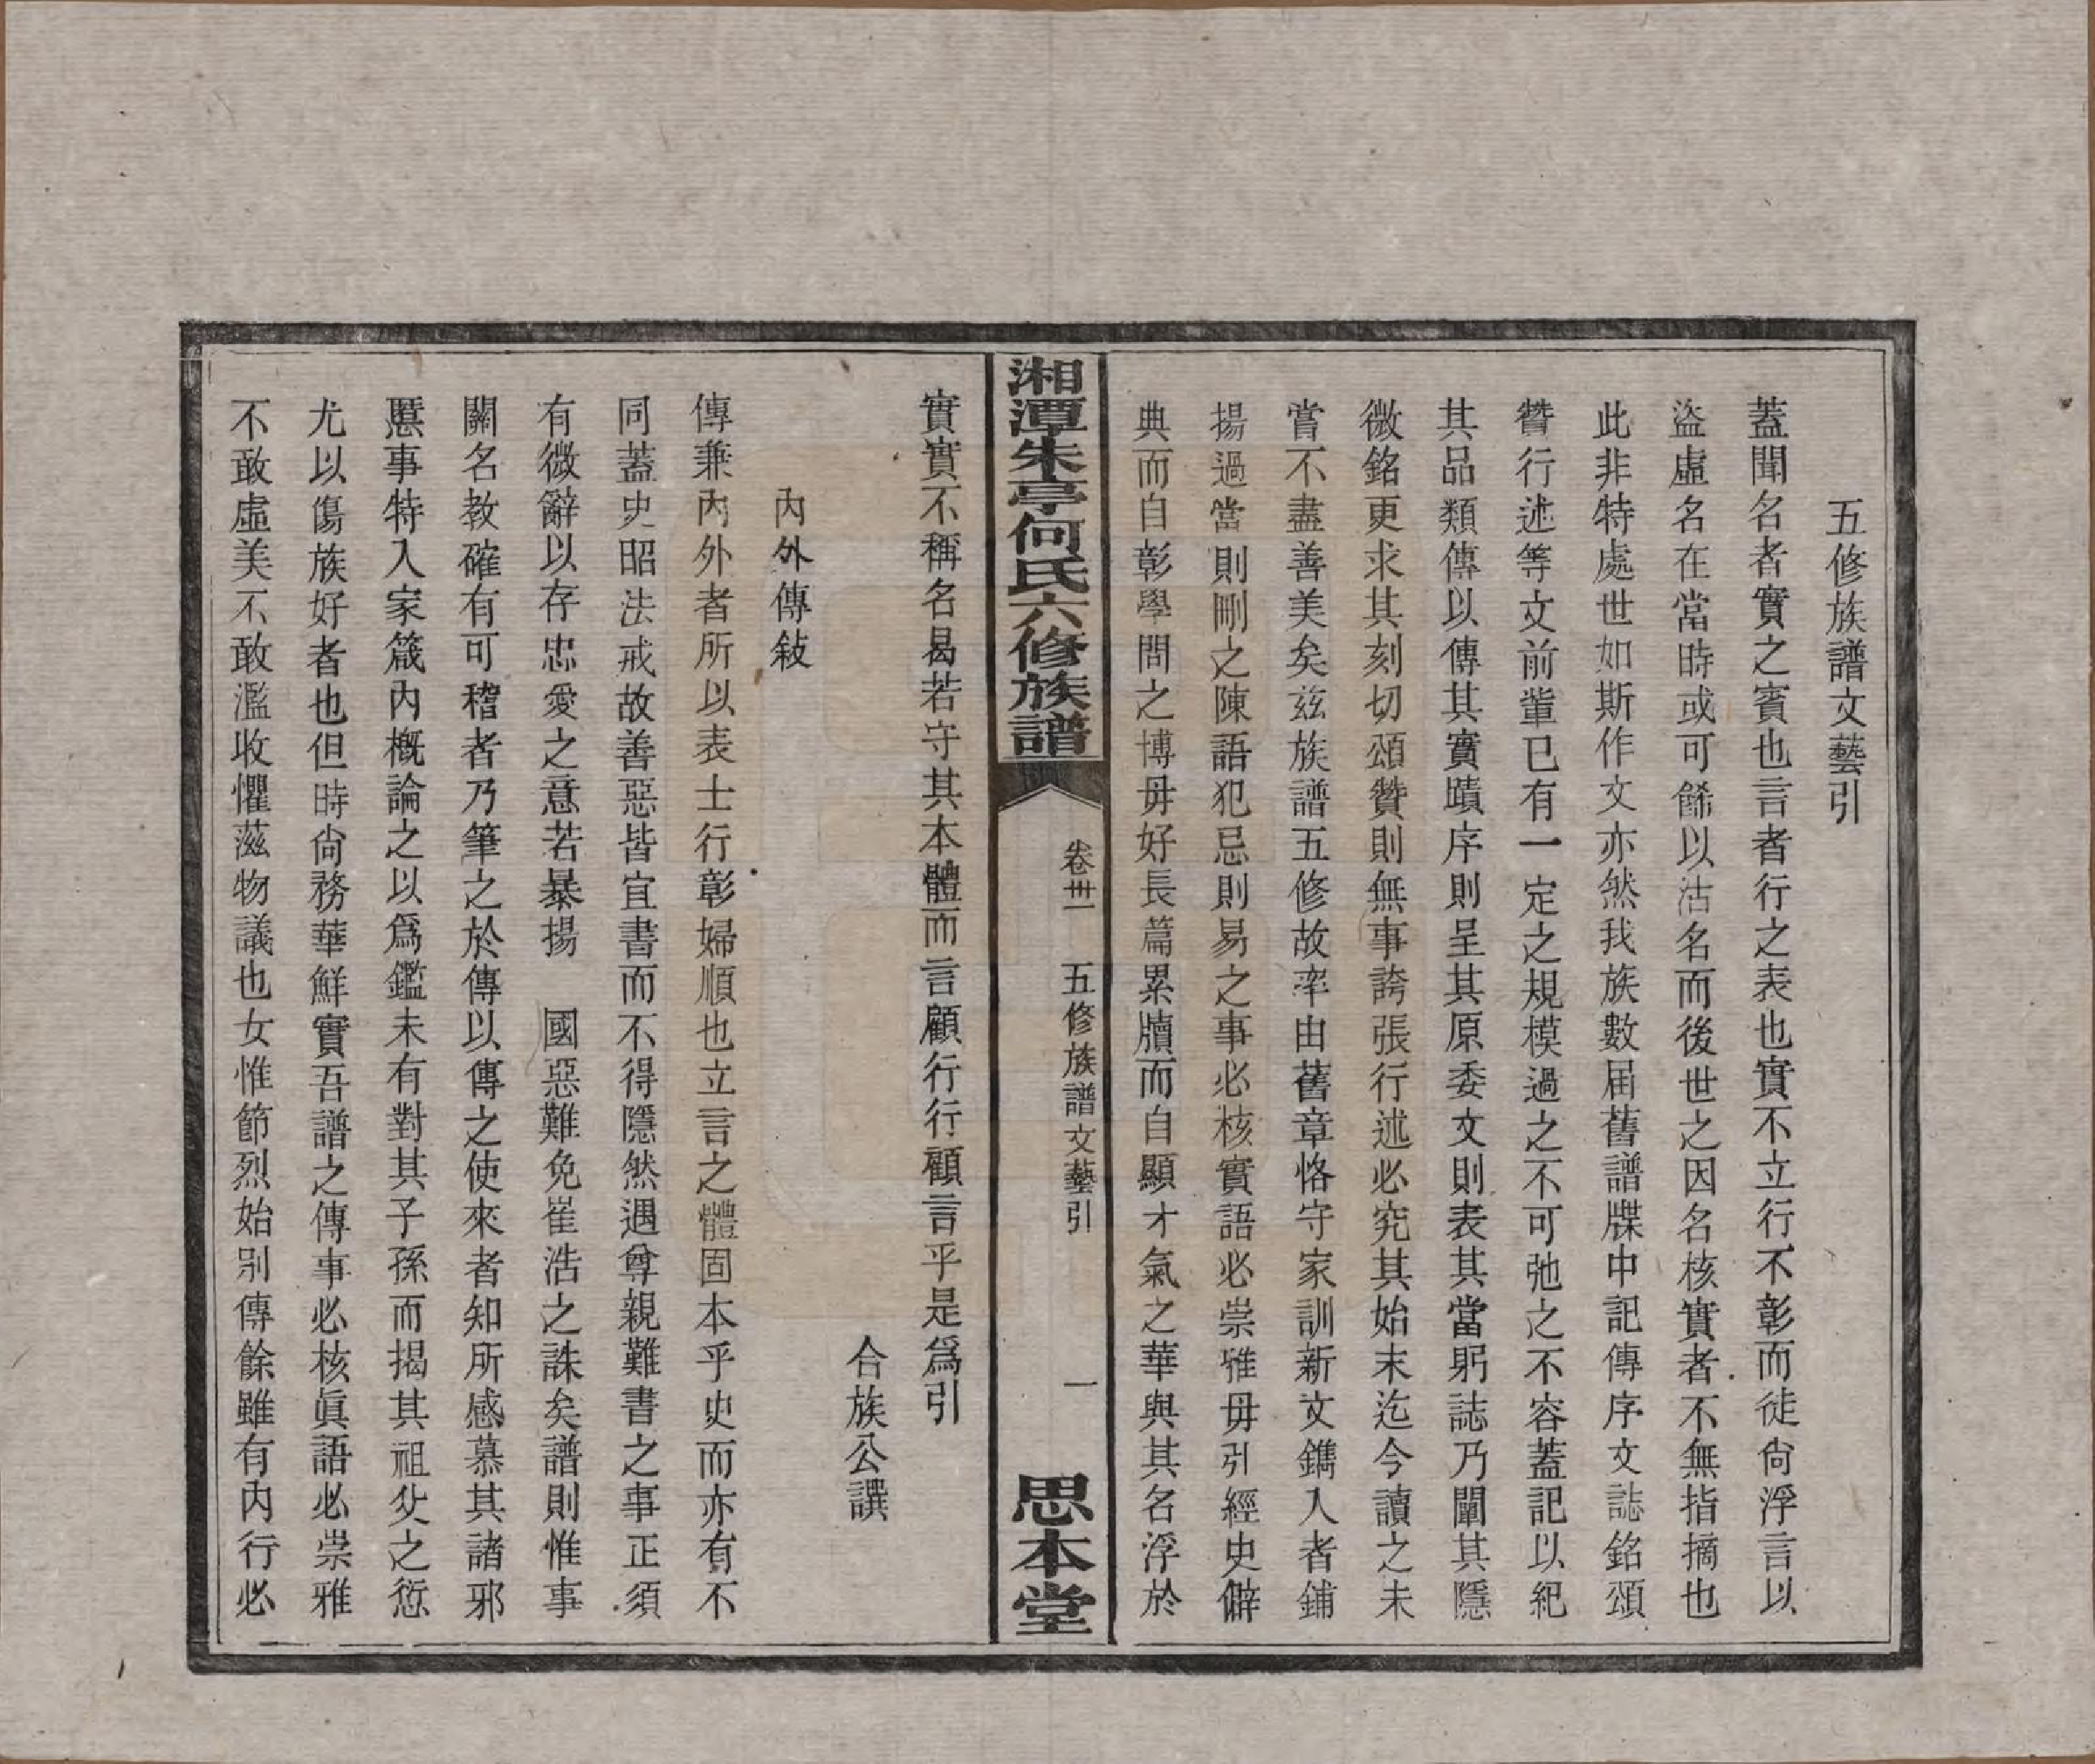 五修族譜文藝引
蓋聞名者實之賓也言者行之表也實不立行不彰而徒尙浮言以
盜虛名在當時或可餙以沽名而後世之因名核實者不無指摘也
此非特處世如斯作文亦然我族數届舊譜牒中記傳序文誌銘頌
贊行述等文前輩已有一定之規模過之不可弛之不容蓋記以紀
其品類傳以傳其實蹟序則呈其原委文則表其當躬誌乃闡其隱
微銘更求其刻切頌贊則無事誇張行述必究其始末迄今讀之未
嘗不盡善美矣玆族譜五修故率由舊章恪守家訓新文鐫入者鋪
揚過當則剛之陳語犯忌則易之事必核實語必崇雅毋引經史僻
典而自彰學問之博毋好長篇累牘而自顯才氣之華與其名浮於
湘潭朱亭何氏六修族譜
卷卅一 五修族譜文藝引 一
思本堂
實實不稱名曷若守其本體而言顧行行顧言乎是爲引
合族公譔
內外傳敍
傳兼內外者所以表士行彰婦順也立言之體固本乎史而亦有不
同蓋史昭法戒故善惡皆宜書而不得隱然遇尊親難書之事正須
有微辭以存忠愛之意若暴揚 國惡難免崔浩之誅矣譜則惟事
關名教確有可稽者乃筆之於傳以傳之使來者知所感慕其諸邪
慝事特入家箴內槪論之以爲鑑未有對其子孫而揭其祖父之愆
尤以傷族好者也但時尙務華鮮實吾譜之傳事必核眞語必崇雅
不敢虛美不敢濫收懼滋物議也女惟節烈始別傳餘雖有內行必